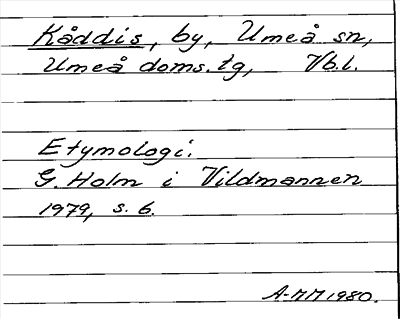 Kåddis, by, Umeå sn,
Umeå doms.tg, Vb.l.
Etymologi:
G. Holm i Vildmannen
1979, s. 6.
A-MM 1980.